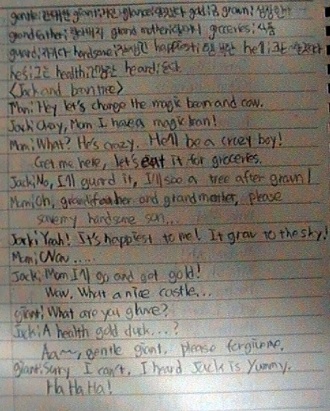 gentle:관대한 giant:거인 glance: gold:금 grown:
grandfather:할아버지 grand mother: groceries:
guard: handsome: happiest: he'll:
he's:그는 health:건강한 heard:듣다
<Jack and bean tree>
Man: Hey let's change the magic bean and cow.
Jack: Okay, Mom I have a magic bean!
Mom: What? He's crazy. He'll be a crazy boy!
Get me here, let's eat it for groceries.
Jack: No, I'll guard it, I'll see a tree after grown!
Mom: Oh, grandfather and grandmother, please
save my handsome son...
Jack: Yeah! It's happiest to me! It grow to the sky!
Mom: Wow.....
Jack: Mom I'll go and get gold!
Wow. What a nice castle...
giant: What are you glance?
Jack: A health gold duck...?
Aa~~, gentle giant, please forgive me.
giant: Sorry I can't. I heard Jack is Yummy.
Ha Ha Ha!